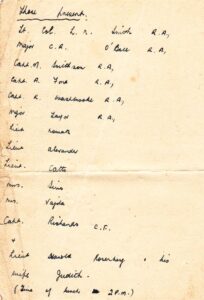 Those present.
Lt. Col. L. R. Smith R.A,
Major C.A. O'Bell R.A,
Capt. N. Smithson R.A,
Capt. A. Ford R.A,
Capt. R. R.A,
Major Taylor R.A,
Lieut
Lieut Alexander
Lieut. Catto
Mrs. Sims
Mrs. Vajda
Capt. Richards C.F.
+
Lieut Harold Rosenberg + his
wife Judith.
(Time of lunch - 2 P.M.)